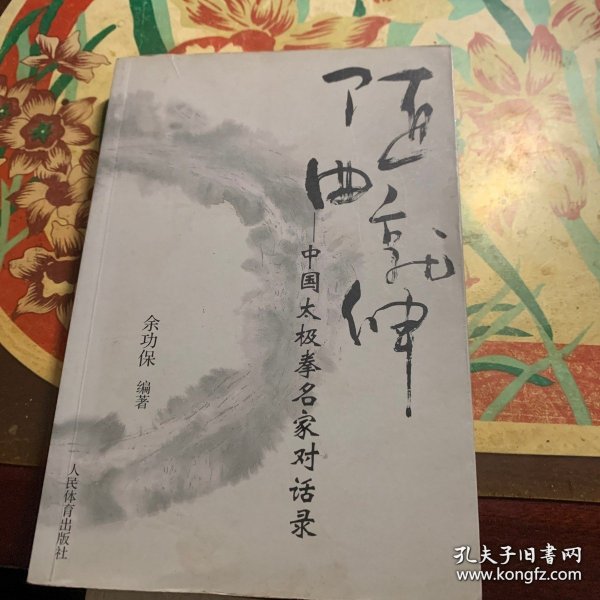 随曲就伸
——中国太极拳名家对话录
余功保 编著
人民体育出版社
孔夫子旧书网
www.kongfz.com